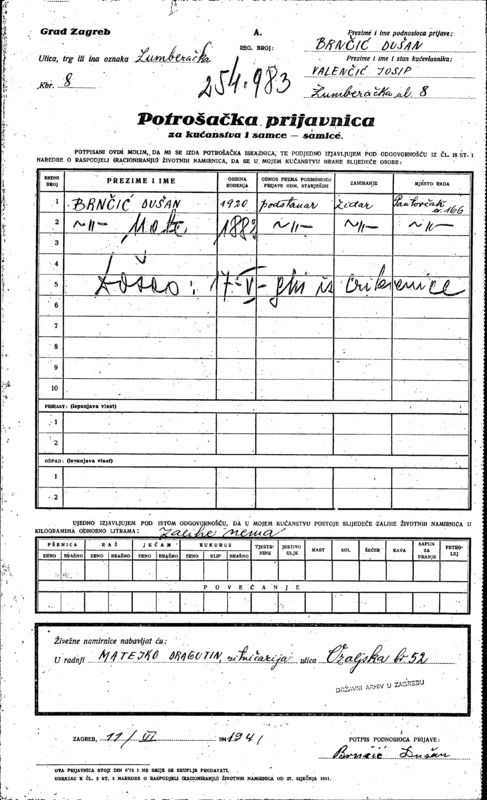 Grad Zagreb
A.
Prezime i ime podnosioca prijave:
BRNČIĆ DUŠAN
Ulica, trg ili ina oznaka Žumberačka
REG. BROJ:
Prezime i ime i stan kućevlasnika:
VALENČIĆ JOSIP
Kbr. 8
254.983
Žumberačka ul. 8
Potrošačka prijavnica
za kućanstva i samce — samice.
POTPISANI OVIM MOLIM, DA MI SE IZDA POTROŠAČKA ISKAZNICA, TE PODJEDNO IZJAVLJUJEM POD ODGOVORNOŠĆU IZ ČL. 18 ST. I
NAREDBE O RASPODJELI (RACIONIRANJU) ŽIVOTNIH NAMIRNICA, DA SE U MOJEM KUĆANSTVU HRANE SLIJEDEĆE OSOBE:
REDNI BROJ PREZIME I IME GODINA ROĐENJA ODNOS PREMA PODNOSIOCU PRIJAVE ODN. STARJEŠINI ZANIMANJE MJESTO RADA
1 BRNČIĆ DUŠAN 1920 podstanar Zidar Pantovčak br. 166
2 ~11~ 1883 ~11~ ~11~ ~11~
3
4
5 17-V- iz Crikvenice
6
7
8
9
10
PRIRAST: (ispunjava vlast)
1
2
ODPAD: (ispunjava vlast)
1
2
UJEDNO IZJAVLJUJEM POD ISTOM ODGOVORNOŠĆU, DA U MOJEM KUĆANSTVU POSTOJE SLIJEDEĆE ZALIHE ŽIVOTNIH NAMIRNICA U
KILOGRAMIMA ODNOSNO LITRAMA: Zalihe nema
PŠENICA RAŽ JEČAM KUKURUZ TJESTENINE JESTIVO ULJE MAST SOL ŠEĆER KAVA SAPUN ZA PRANJE PETROLEJ
ZRNO BRAŠNO ZRNO BRAŠNO ZRNO BRAŠNO ZRNO KLIP BRAŠNO
POVEĆANJE
Živežne namirnice nabavljat ću:
U radnji MATEJKO DRAGUTIN, sitničarija ulica Ozaljska br 52
DRŽAVNI ARHIV U ZAGREBU
ZAGREB, 11/VI 1941
POTPIS PODNOSIOCA PRIJAVE:
Brnčić Dušan
OVA PRIJAVNICA STOJI DIN 0.75 I NE SMIJE SE SKUPLJE PRODAVATI.
OBRAZAC K ČL. 3 ST. 3 NAREDBE O RASPODJELI (RACIONIRANJU) ŽIVOTNIH NAMIRNICA OD 27. SIJEČNJA 1941.